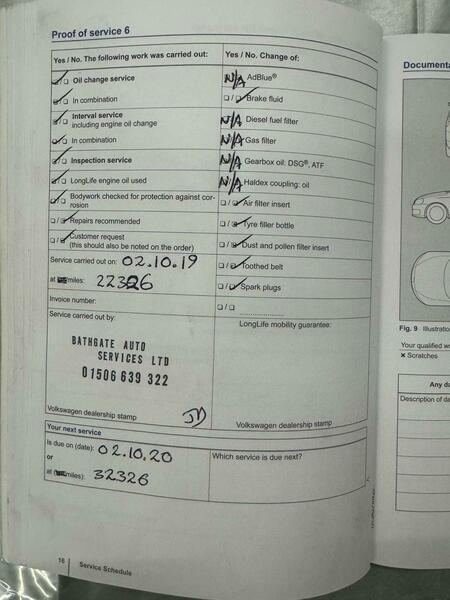 Proof of service 6
Yes / No. The following work was carried out:
Oil change service
In combination
Interval service
including engine oil change
In combination
Inspection service
LongLife engine oil used
Bodywork checked for protection against cor-
rosion
Repairs recommended
Customer request
(this should also be noted on the order)
Service carried out on: 02.10.19
at miles: 22326
Invoice number:
Service carried out by:
BATHGATE AUTO
SERVICES LTD
01506 639 322
Volkswagen dealership stamp
Yes / No. Change of:
N/A AdBlue®
Brake fluid
N/A Diesel fuel filter
N/A Gas filter
N/A Gearbox oil: DSG®, ATF
N/A Haldex coupling: oil
Air filter insert
Tyre filler bottle
Dust and pollen filter insert
Toothed belt
Spark plugs
LongLife mobility guarantee:
Volkswagen dealership stamp
Your next service
Is due on (date): 02.10.20
or
at (miles): 32326
Which service is due next?
16 Service Schedule
Documenta
Fig. 9 Illustration
Your qualified w
× Scratches
Any da
Description of da